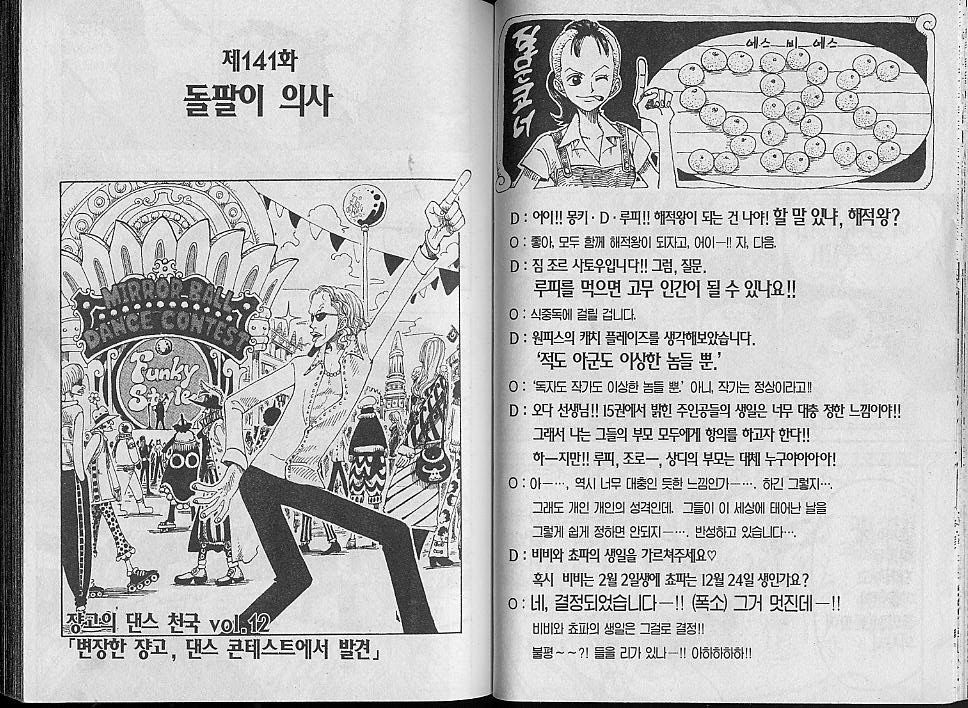 제141화
돌팔이 의사
MIRROR BALL
DANCE CONTEST
Funky
Style
쟝고의 댄스 천국 vol.12
「변장한 쟝고, 댄스 콘테스트에서 발견」
에스 비 에스
D : 어이!! 몽키·D·루피!! 해적왕이 되는 건 나야! 할 말 있냐, 해적왕?
O : 좋아, 모두 함께 해적왕이 되자고, 어이―!! 자, 다음.
D : 짐 조르 사토우입니다!! 그럼, 질문.
루피를 먹으면 고무 인간이 될 수 있나요!!
O : 식중독에 걸릴 겁니다.
D : 원피스의 캐치 플레이즈를 생각해보았습니다.
‘적도 아군도 이상한 놈들 뿐.’
O : ‘독자도 작가도 이상한 놈들 뿐.’ 아니, 작가는 정상이라고!!
D : 오다 선생님!! 15권에서 밝힌 주인공들의 생일은 너무 대충 정한 느낌이야!!
그래서 나는 그들의 부모 모두에게 항의를 하고자 한다!!
하―지만!! 루피, 조로―, 상디의 부모는 대체 누구야아아아!
O : 아―…, 역시 너무 대충인 듯한 느낌인가―…. 하긴 그렇지….
그래도 개인 개인의 성격인데. 그들이 이 세상에 태어난 날을
그렇게 쉽게 정하면 안되지―…. 반성하고 있습니다….
D : 비비와 쵸파의 생일을 가르쳐주세요♡
혹시 비비는 2월 2일생에 쵸파는 12월 24일 생인가요?
O : 네, 결정되었습니다―!! (폭소) 그거 멋진데―!!
비비와 쵸파의 생일은 그걸로 결정!!
불평~~?! 들을 리가 있나―!! 아하하하하!!